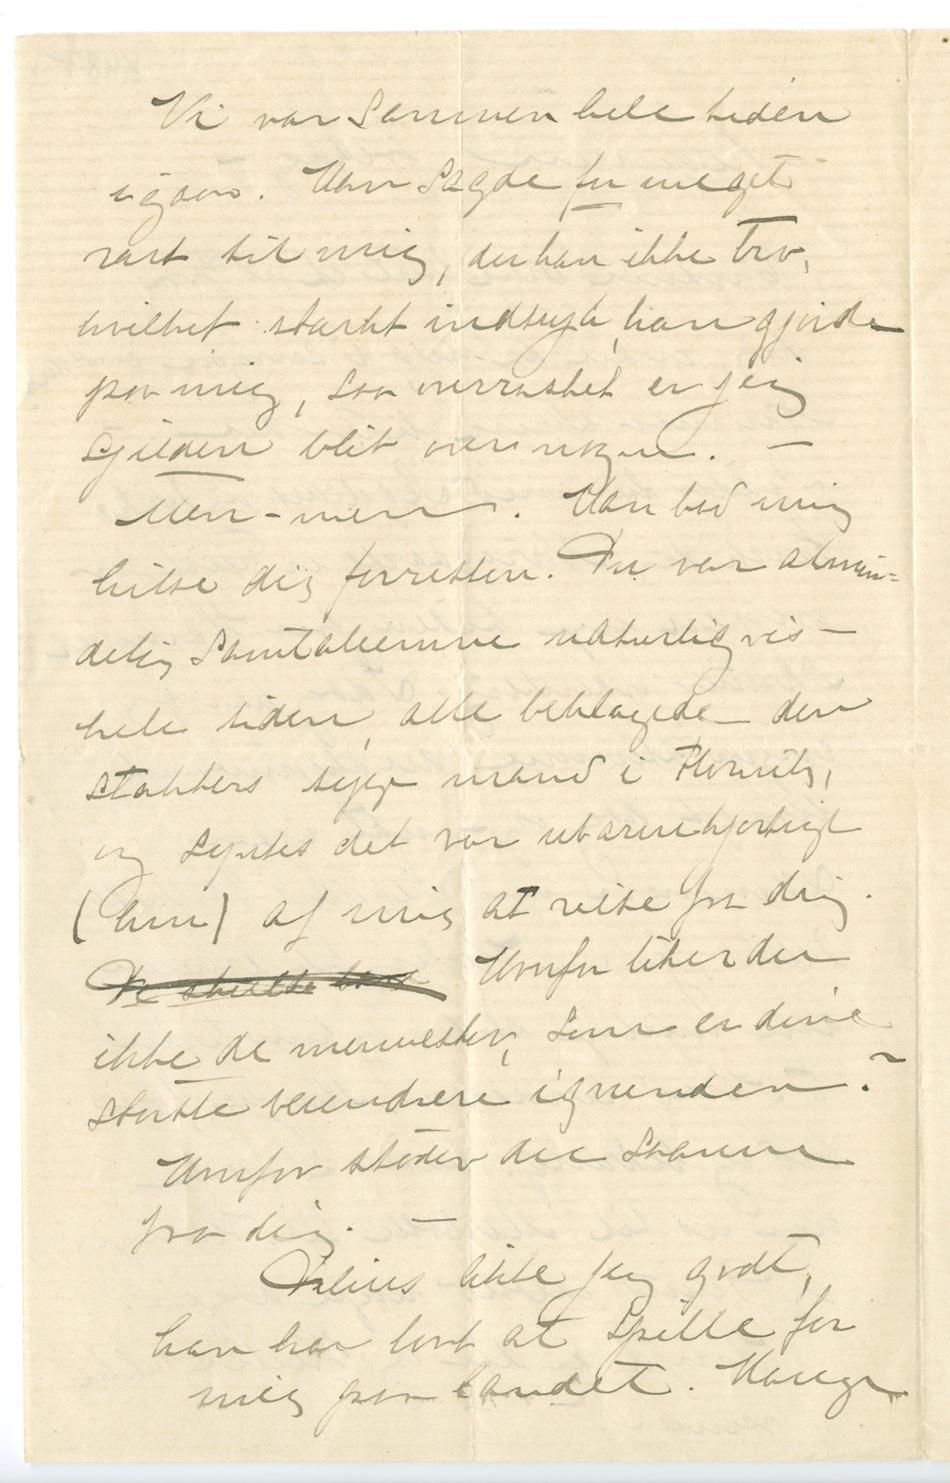 Vi var sammen hele tiden
igaar. Han sagde for meget
rart til mig, du kan ikke tro,
hvilket stærkt indtryk han gjorde
paa mig, saa overrasket er jeg
sjelden blit over nogen. —
Men - men. Han bad mig
hilse dig forresten. Du var almin=
delig samtaleemne naturligvis —
hele tiden, alle beklagede den
stakkers syge mand i
og syntes det var ubarmhjertigt
(hm) af mig at reise fra dig.
De skulde bare Hvorfor liker du
ikke de mennesker, som er dine
største beundrere igrunden?
Hvorfor støder du saanne
fra dig. —
likte jeg godt,
han har lovt at spille for
mig paa landet. Mange